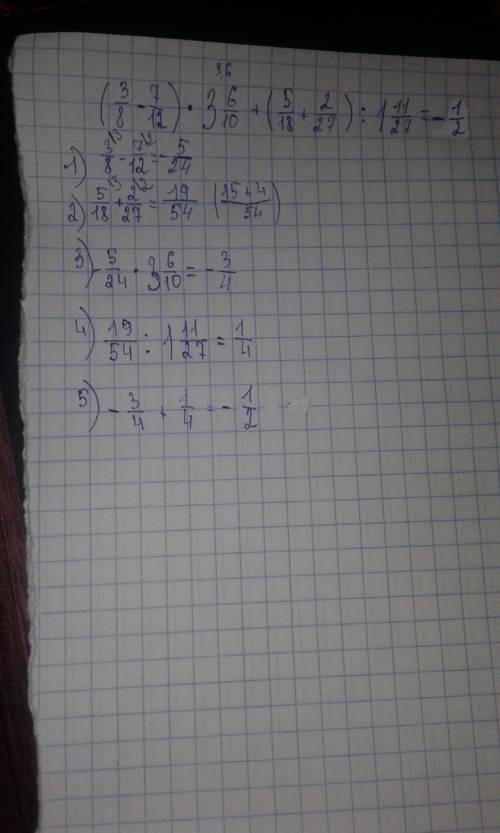 3,6
(3/8 - 7/12) · 3 6/10 + (5/18 + 2/27) : 1 11/27 = - 1/2
1) 3/8 ³ - 7/12 ² = - 5/24
2) 5/18 ³ + 2/27 ² = 19/54 (15+4/54)
3) - 5/24 · 3 6/10 = - 3/4
4) 19/54 : 1 11/27 = 1/4
5) - 3/4 + 1/4 = - 1/2